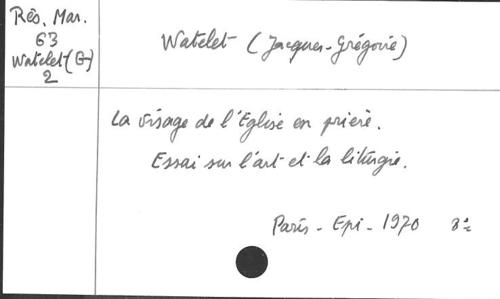 Rés. Mar.
63
Watelet (G)
2
Watelet (Jacques-Grégoire)
La visage de l'Eglise en prière.
Essai sur l'art et la liturgie.
Paris - Epi - 1970 8°